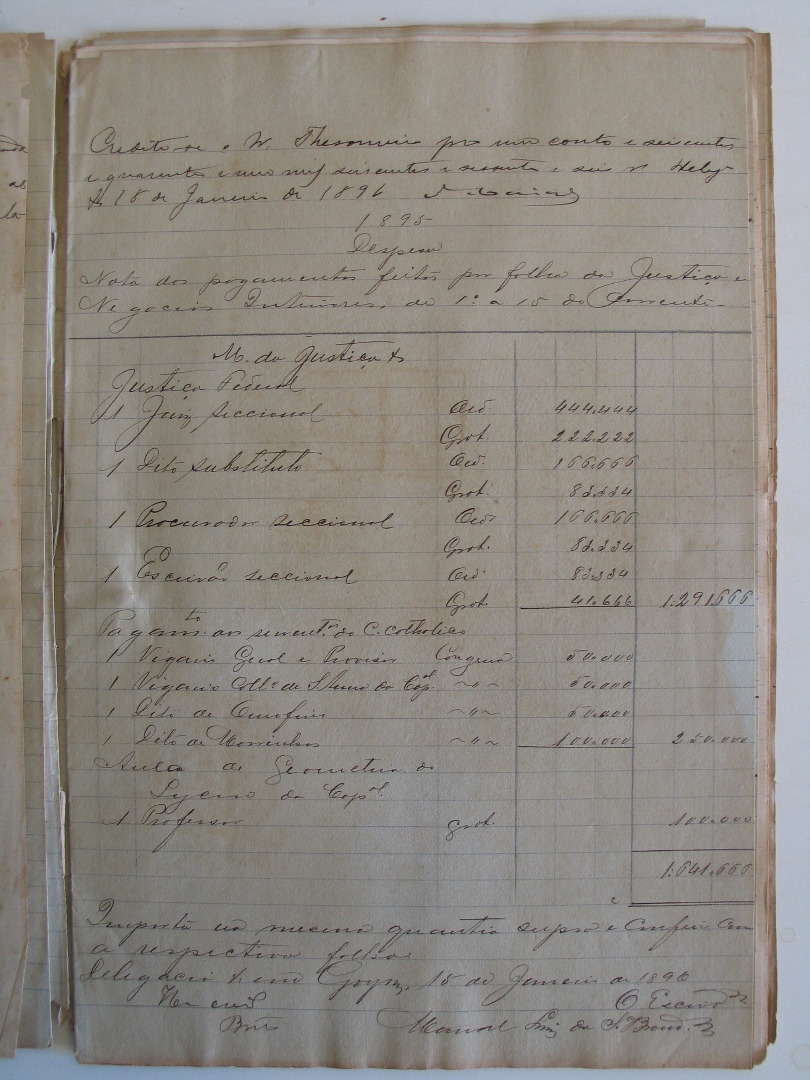 Credite-se o Sr. Thesoureiro por um conto e seiscentos
e quarenta e um mil seiscentos e sessenta e seis rs Deleg
18 de Janeiro de 1896
1895
Despesa
Nota dos pagamentos feitos por folha da Justiça e
Negocios Interiores, de 1º a 15 do Corrente
M. da Justiça &
Justiça Federal
1 Juiz seccional Ord. 444.444
Grat. 222.222
1 Dito substituto Ord. 166.666
Grat. 83.334
1 Procurador seccional Ord. 166.666
Grat. 83.334
1 Escrivão seccional Ord. 83.334
Grat. 41.666 1:291.666
Pagamto aos serventr. do C. Catholico
1 Vigario Geral e Provisor Congrua 50.000
1 Vigario Coll. de S. Anna da Capal ~"~ 50.000
1 Dito de ~"~ 50.000
1 Dito de ~"~ 100.000 250.000
Aula de Geometria do
Lyceu da Capal
1 Professor grat. 100.000
1:641.666
Importa na mesma quantia supra e confere com
a respectiva folha
Delegacia em Goyaz, 15 de Janeiro de 1896
O Escrivão
Manoel Luiz da S. Brandão